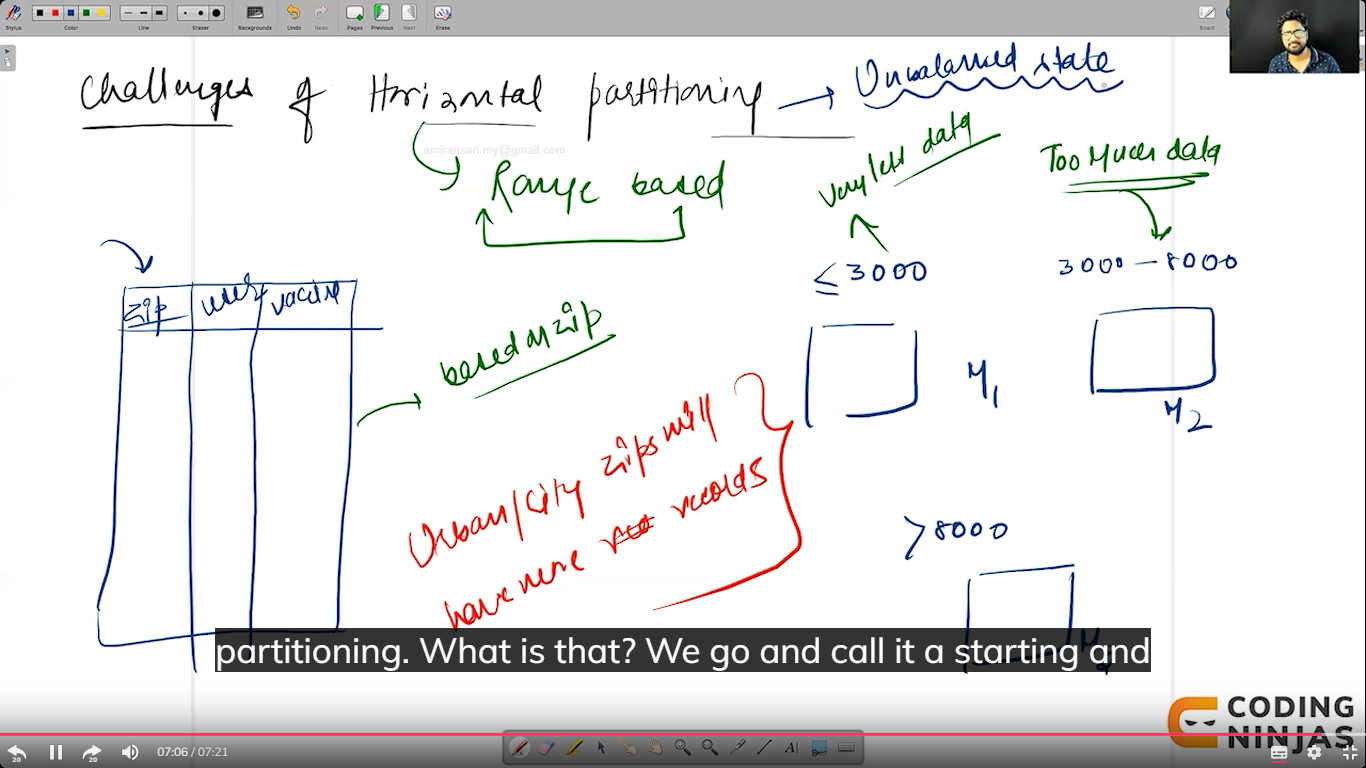 Stylus
Color
Line
Eraser
Backgrounds
Undo
Redo
Pages
Previous
Next
Erase
Board
Challenges of Horizontal partitioning → Unbalanced state
amiransari.my@gmail.com
Range based
very less data
Too Much data
≤ 3000
3000 — 8000
zip user vaccine
based on zip
M1
M2
Urban/City zips will
have more records
> 8000
partitioning. What is that? We go and call it a starting and
CODING
NINJAS
20
20
07:06 / 07:21